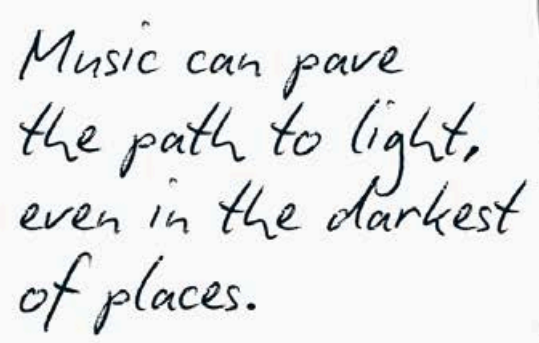 Music can pave
the path to light,
even in the darkest
of places.